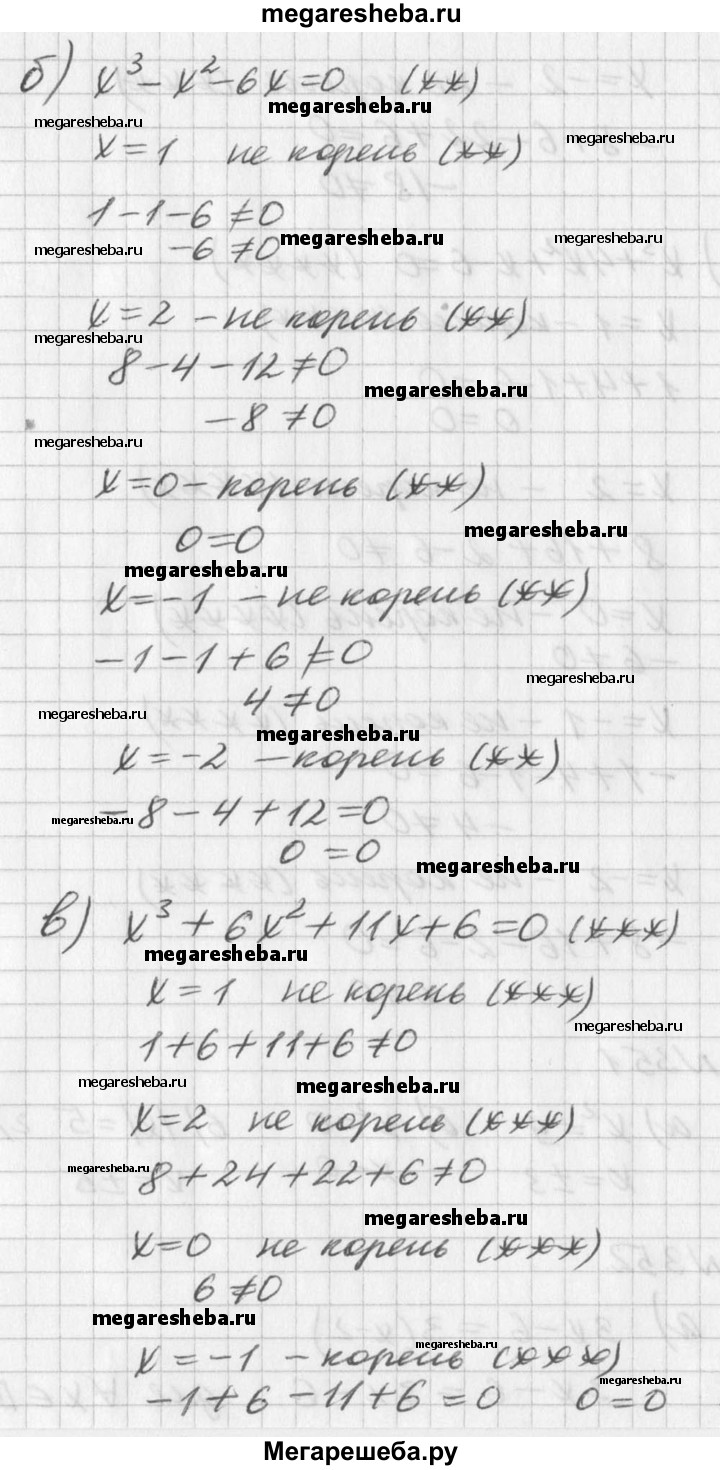 megaresheba.ru
б) x³ - x² - 6x = 0 (**)
megaresheba.ru
megaresheba.ru
x = 1 не корень (**)
megaresheba.ru
1 - 1 - 6 ≠ 0
-6 ≠ 0
megaresheba.ru
megaresheba.ru
megaresheba.ru
x = 2 - не корень (**)
megaresheba.ru
8 - 4 - 12 ≠ 0
megaresheba.ru
-8 ≠ 0
megaresheba.ru
x = 0 - корень (**)
megaresheba.ru
0 = 0
megaresheba.ru
x = -1 - не корень (**)
-1 - 1 + 6 ≠ 0
megaresheba.ru
4 ≠ 0
megaresheba.ru
megaresheba.ru
x = -2 - корень (**)
-8 - 4 + 12 = 0
megaresheba.ru
0 = 0
megaresheba.ru
в) x³ + 6x² + 11x + 6 = 0 (***)
megaresheba.ru
x = 1 не корень (***)
megaresheba.ru
1 + 6 + 11 + 6 ≠ 0
megaresheba.ru
megaresheba.ru
x = 2 не корень (***)
megaresheba.ru
8 + 24 + 22 + 6 ≠ 0
megaresheba.ru
x = 0 не корень (***)
6 ≠ 0
megaresheba.ru
megaresheba.ru
x = -1 - корень (***)
megaresheba.ru
-1 + 6 - 11 + 6 = 0 0 = 0
Мегарешеба.ру